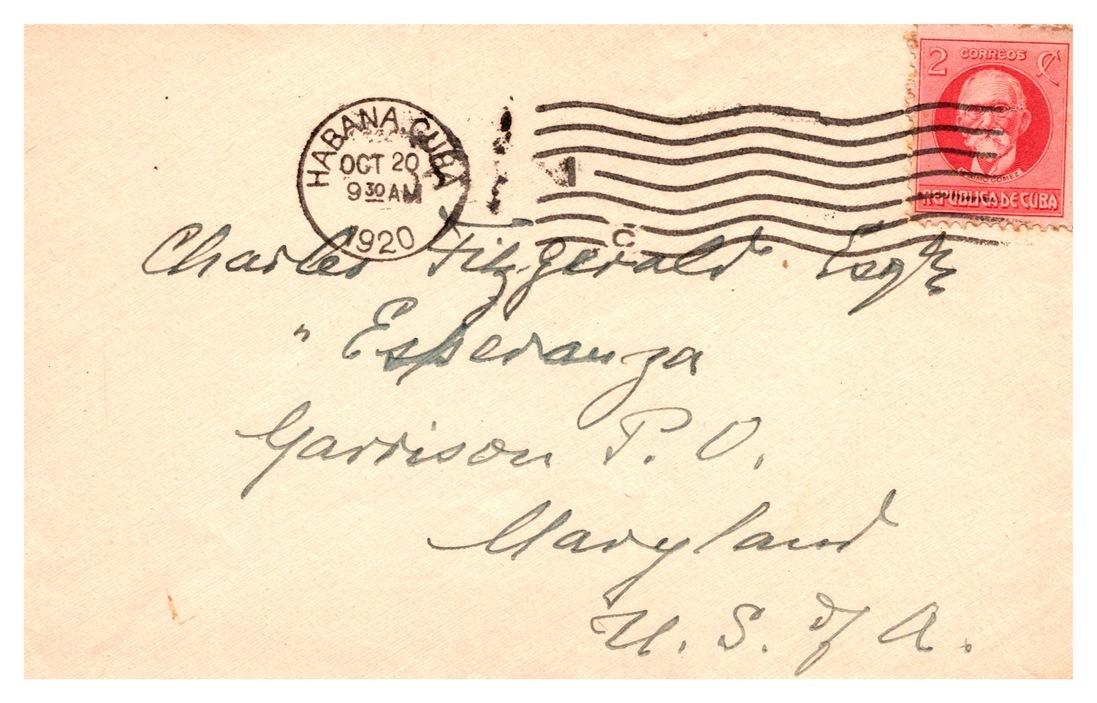 2 CORREOS ¢
MAXIMO GOMEZ
REPUBLICA DE CUBA
HABANA, CUBA
OCT 20
9 30 AM
1920
C
Charles Fitzgerald Esqr
" Esperanza
Garrison P. O.
Maryland
U. S. of A.